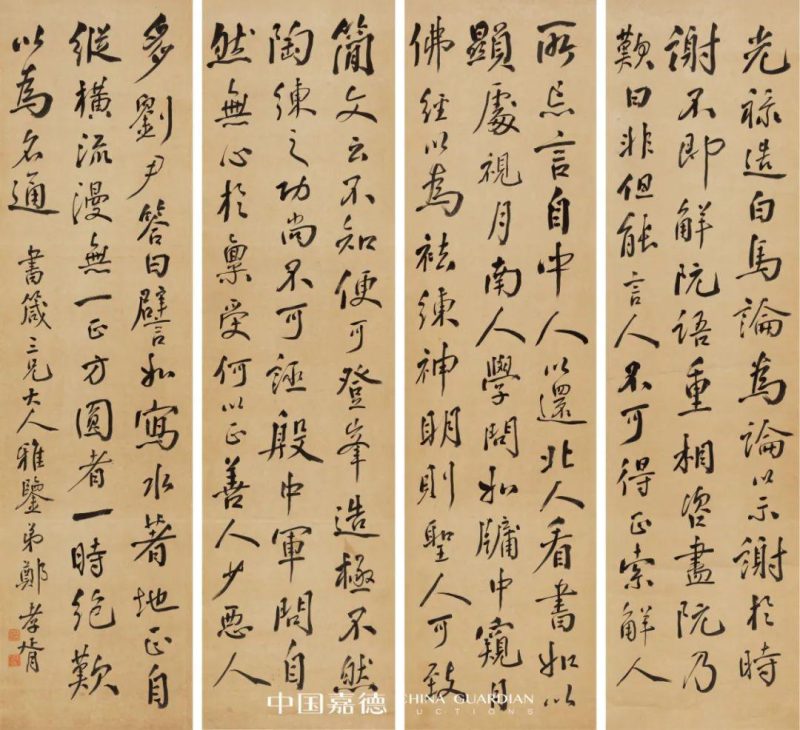 光祿造白馬論為論以示謝於時
謝不即解阮語重相咨盡阮乃
歎曰非但能言人不可得正索解人
所忘言自中人以還北人看書如以
顯處視月南人學問如牖中窺日
佛經以為祛練神明則聖人可致
簡文云不知便可登峯造極不然
陶練之功尚不可誣殷中軍問自
然無心於稟受何以正善人少惡人
多劉尹答曰譬如寫水著地正自
縱橫流漫無一正方圓者一時絕歎
以為名通 書箴三兄大人雅鑒弟鄭孝胥
中国嘉德 CHINA GUARDIAN
AUCTIONS